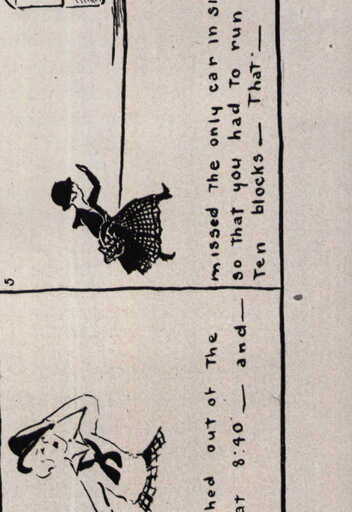 hed out of The
at 8:40 — and —
5
missed The only car in si
so That you had To run
Ten blocks — That —